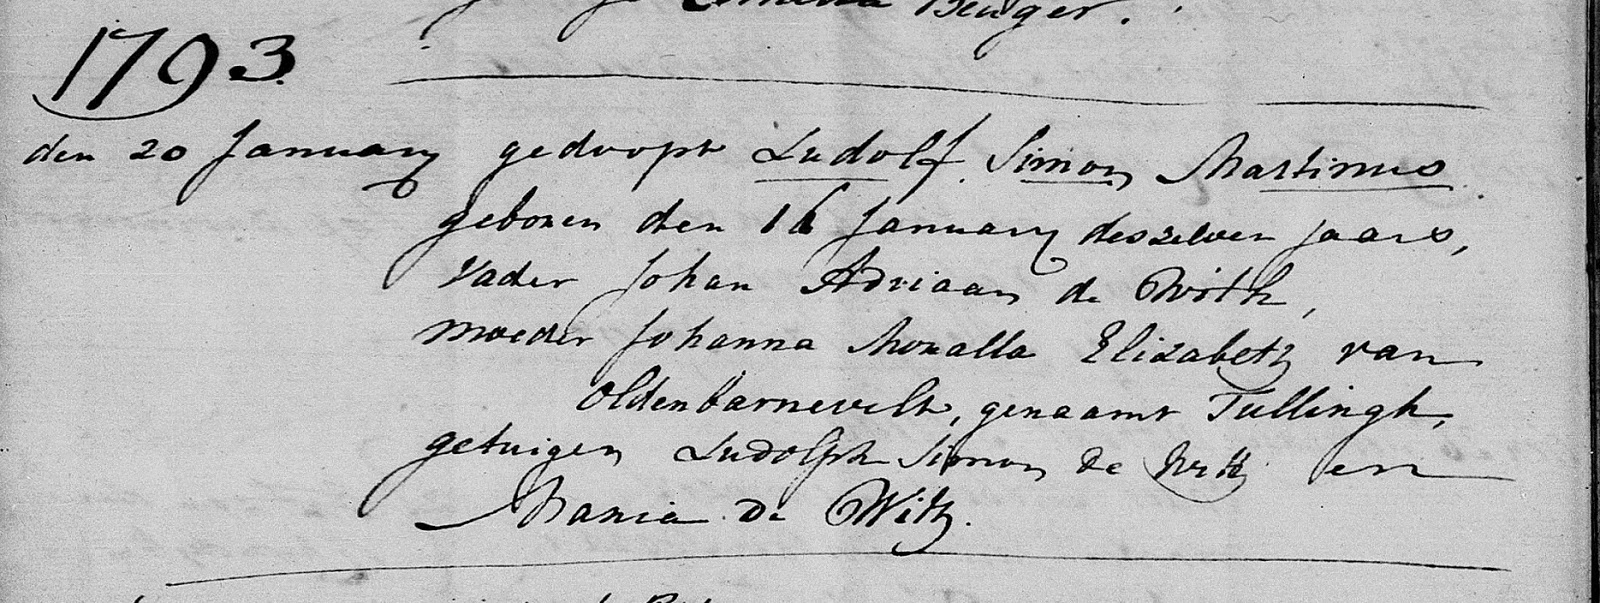 Cornelia Benger.
1793.
den 20 January gedoopt Ludolf Simon Martinus
geboren den 16 January deszelven jaars,
Vader Johan Adriaan de With,
moeder Johanna Monalla Elizabeth van
Oldenbarnevelt, genaamt Tullingh,
getuigen Ludolph Simon de With en
Maria de With.